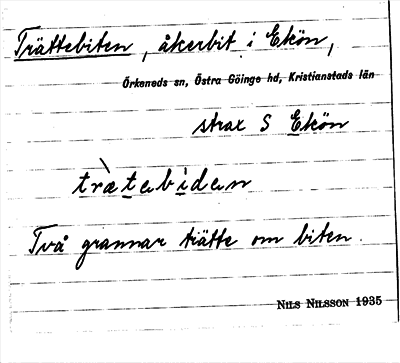 Trättebiten, åkerbit i Ekön,
Örkeneds sn, Östra Göinge hd, Kristianstads län
strax S Ekön
trὰ̀tebiden
Två grannar trätte om biten.
NILS NILSSON 1935